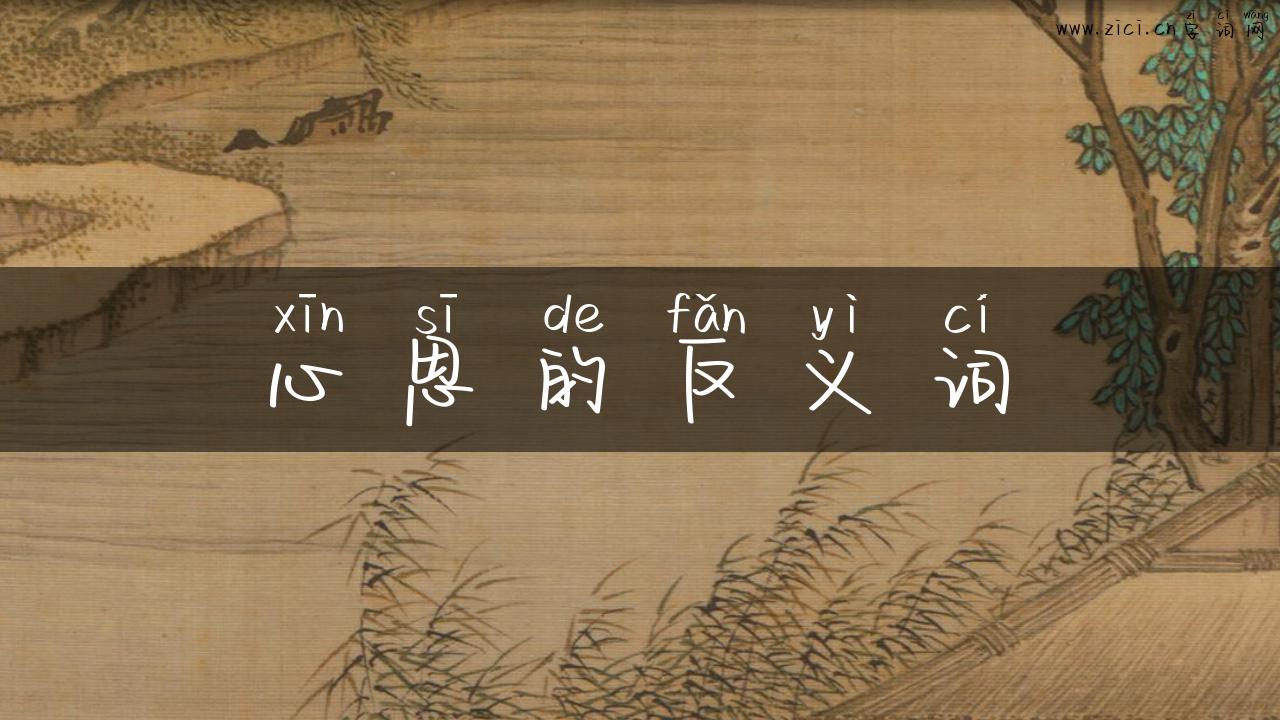 zì cí wǎng
www.zici.cn字词网
xīn sī de fǎn yì cí
心思的反义词